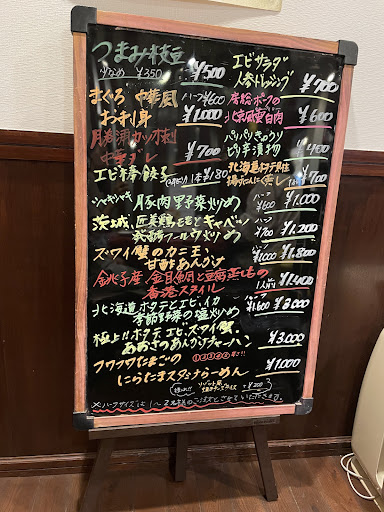 つまみ枝豆
少なめ ¥350 ¥500
まぐろ 中華風
お刺身 ハーフ¥600 ¥1,000
中華ダレ ¥700
エビ棒餃子 1本¥180
エビサラダ
人参ドレッシング ¥700
房総ポークの
北京風雲白肉 ¥600
パリパリきゅうり
ピリ辛漬物 ¥400
北海道ホタテ貝柱
¥700
シャキシャキ 豚肉 野菜炒め ハーフ ¥600 ¥1,000
茨城、匠美鶏ももとキャベツ
炒め ハーフ ¥700 ¥1,200
ズワイ蟹のカニ玉、
甘酢あんかけ ハーフ ¥1,000 ¥1,800
銚子産、金目鯛と豆腐蒸しもの
香港スタイル 1人前 ¥1,400
北海道ホタテとエビ、イカ
季節野菜の塩炒め ハーフ ¥1,600 ¥3,000
極上!!ホタテ、エビ、ズワイ蟹、
あおさのあんかけチャーハン ¥3,000
フワフワたまごの
にらたまスタミナらーめん ¥1,000
+¥200
※ハーフサイズは1〜2名様のご注文とさせていただきます。